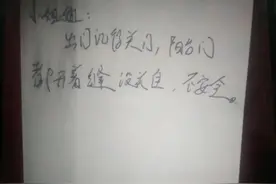 小姐姐：
出门记得关门，阳台门
都开着缝 没关上，不安全。